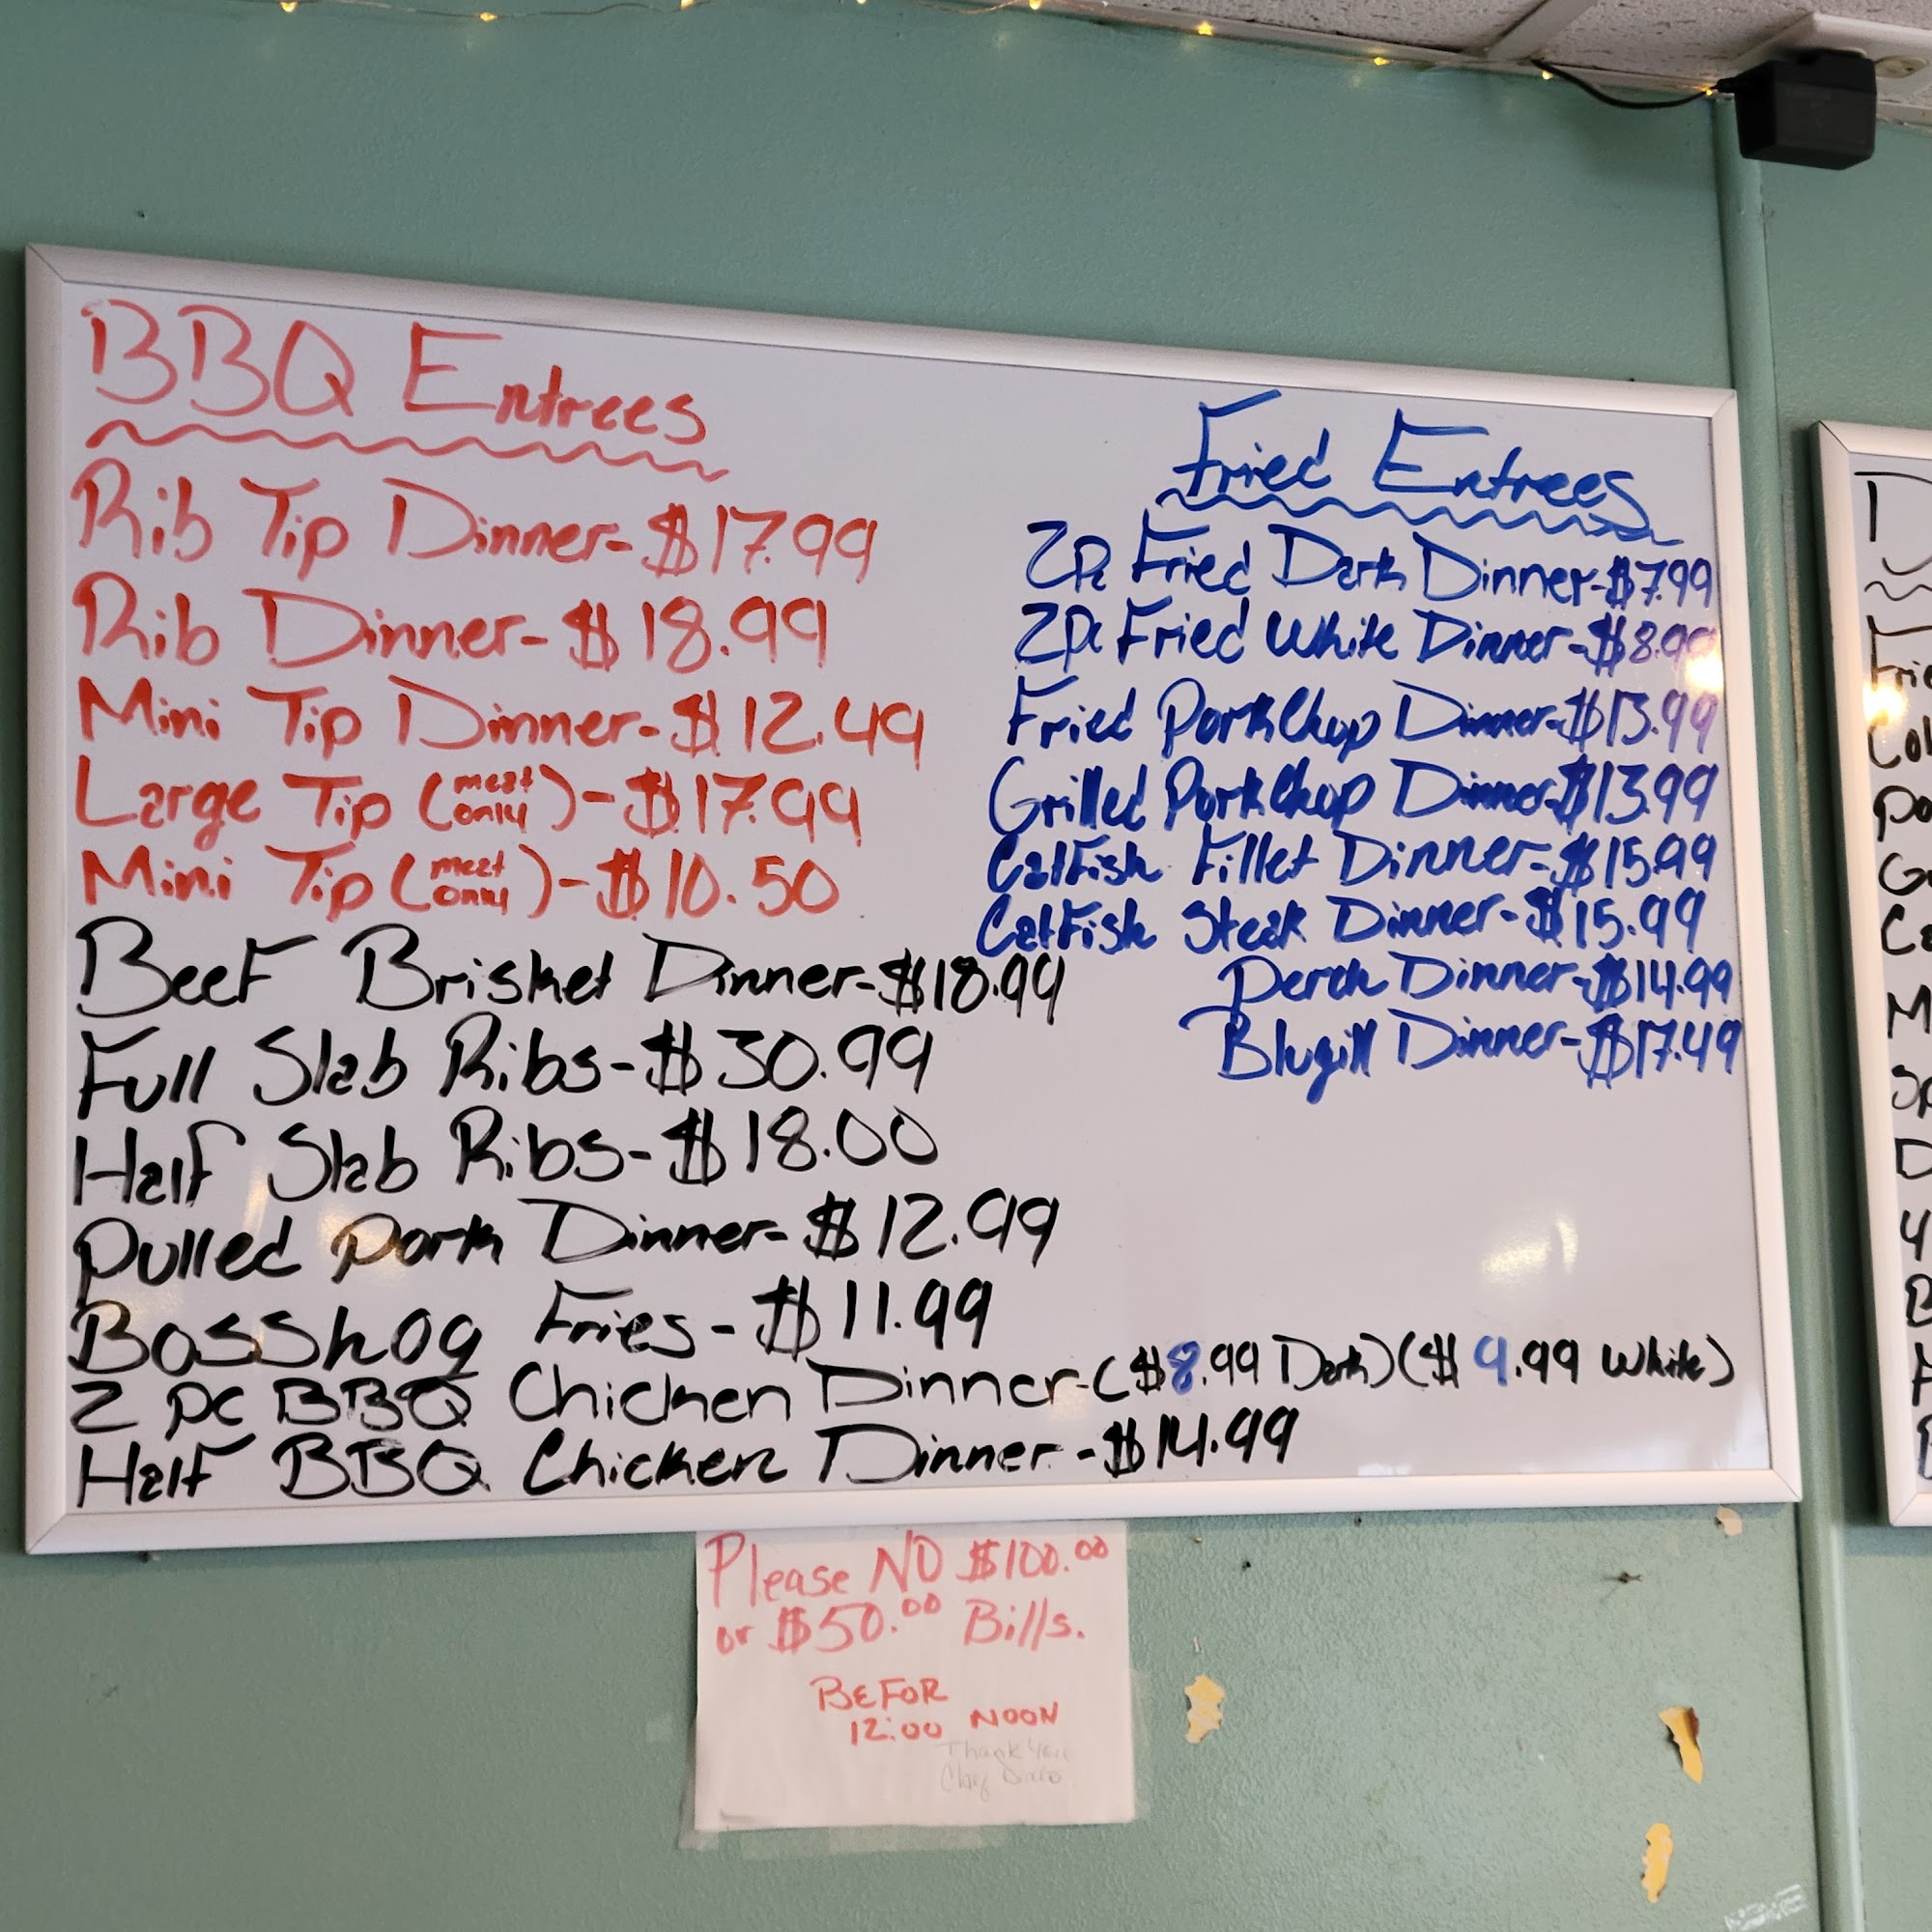 BBQ Entrees
Rib Tip Dinner-$17.99
Rib Dinner-$18.99
Mini Tip Dinner-$12.49
Large Tip (meat only)-$17.99
Mini Tip (meat only)-$10.50
Beef Brisket Dinner-$18.99
Full Slab Ribs-$30.99
Half Slab Ribs-$18.00
Pulled Pork Dinner-$12.99
BossHog Fries-$11.99
2 pc BBQ Chicken Dinner-($8.99 Dark)($9.99 White)
Half BBQ Chicken Dinner-$14.99
Fried Entrees
2pc Fried Dark Dinner-$7.99
2pc Fried White Dinner-$8.99
Fried PorkChop Dinner-$13.99
Grilled PorkChop Dinner-$13.99
CatFish Fillet Dinner-$15.99
CatFish Steak Dinner-$15.99
Perch Dinner-$14.99
Blugill Dinner-$17.49
Please NO $100.00
or $50.00 Bills.
BEFOR
12:00 NOON
Thank You